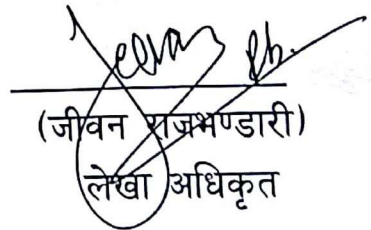 (जीवन राजभण्डारी)
लेखा अधिकृत